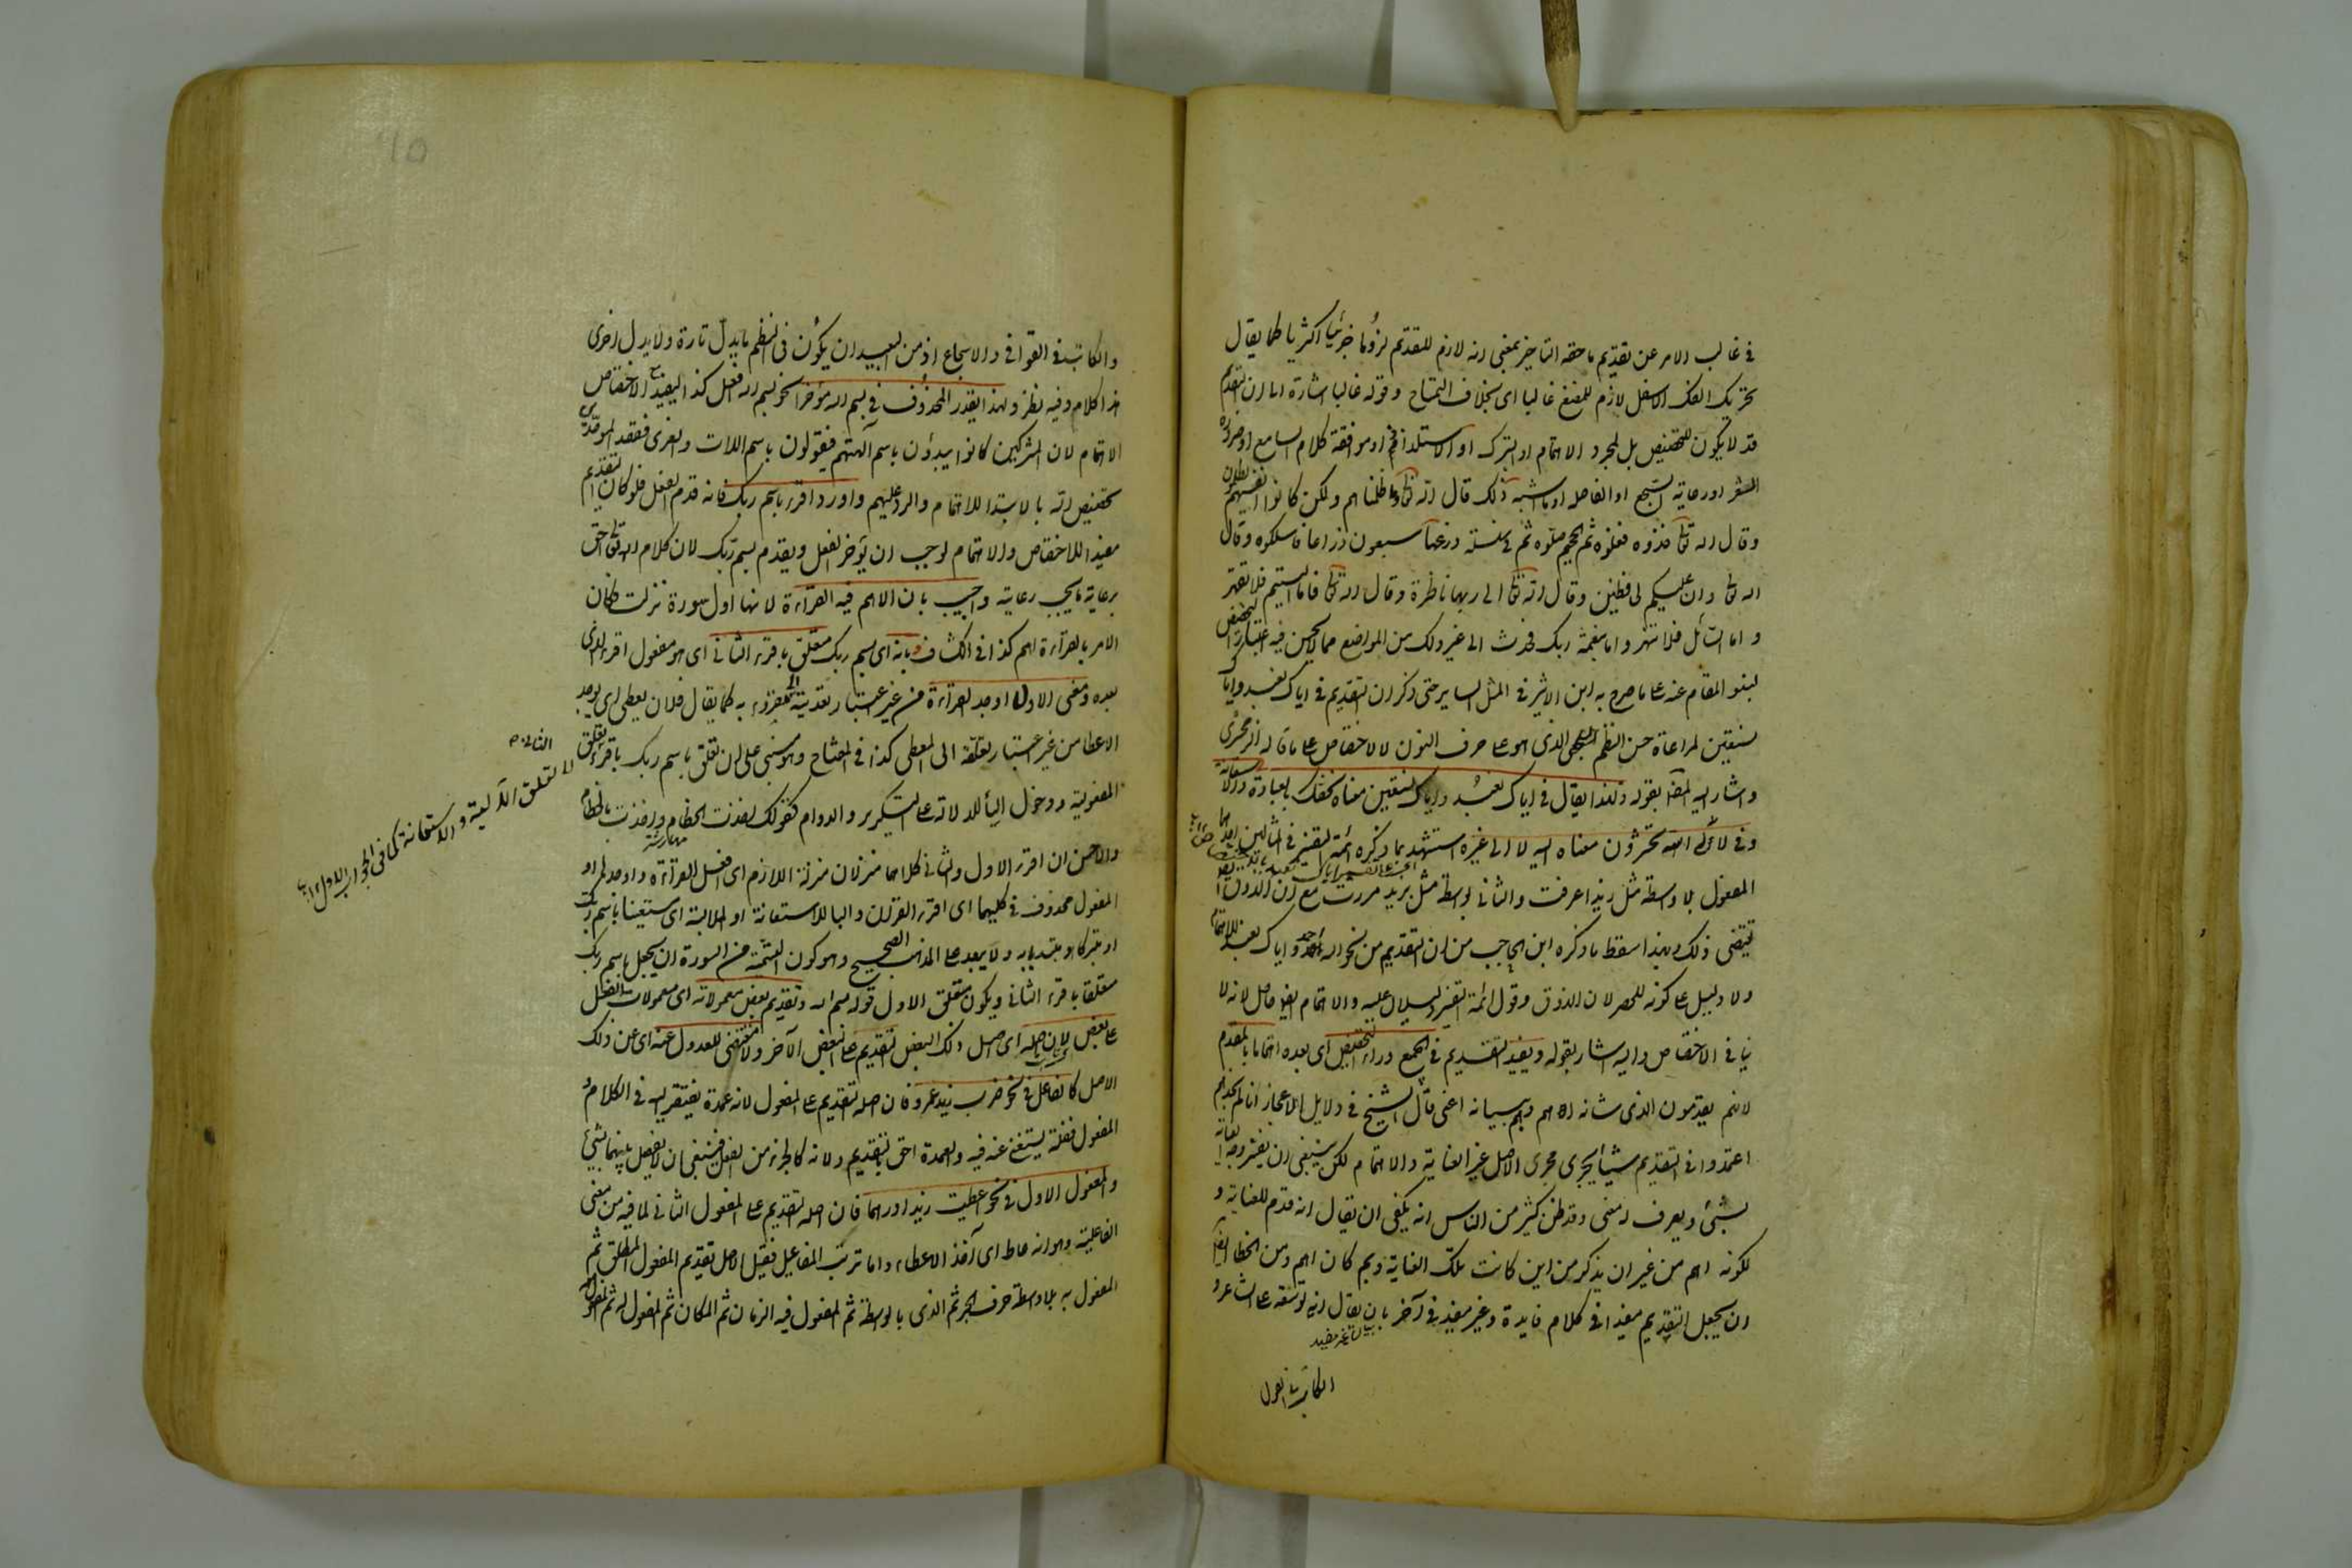 فى غالب الامر عن تقديم ما حقه التاخير بمعنى انه لازم للتقديم لزوما جزئيا اكثريا كما يقال
تحريك الفك الاسفل لازم للمضغ غالبا اى بخلاف التمساح وقوله غالبا اشارة الى ان التقديم
قد لا يكون للتخصيص بل لمجرد الاهتمام او التبرك او الاستلذاذ او موافقة كلام السامع او ضرورة
الشعر او رعاية السجع او الفاصلة او ما اشبه ذلك قال الله تعالى وما ظلمناهم ولكن كانوا انفسهم يظلمون
وقال الله تعالى خذوه فغلوه ثم الجحيم صلوه ثم فى سلسلة ذرعها سبعون ذراعا فاسلكوه وقال
الله تعالى وان عليكم لحافظين وقال الله تعالى الى ربها ناظرة وقال الله تعالى فاما اليتيم فلا تقهر
واما السائل فلا تنهر واما بنعمة ربك فحدث الى غير ذلك من المواضع مما لا يحسن فيه اعتبار التخصيص
لنبو المقام عنه على ما صرح به ابن الاثير فى المثل السائر حتى ذكر ان التقديم فى اياك نعبد واياك
نستعين لمراعاة حسن النظم السجعى الذى هو على حرف النون لا للاختصاص على ما قاله الزمخشرى
واشار اليه المص بقوله ولهذا يقال فى اياك نعبد واياك نستعين معناه نخصك بالعبادة والاستعانة
وفى لالى الله تحشرون معناه اليه لا الى غيره استشهد بما ذكره ائمة التفسير فى المثالين احدهما
المفعول بلا واسطة مثل زيدا عرفت والثانى بواسطة مثل بزيد مررت مع ان الذوق ايضا
يقتضى ذلك وبهذا سقط ما ذكره ابن الحاجب من ان التقديم من نحو الله احمد واياك نعبد للاهتمام
ولا دليل على كونه للحصر لان الذوق وقول ائمة التفسير دليلان عليه والاهتمام ايضا حاصل لانه لا
ينافى الاختصاص واليه اشار بقوله ويفيد التقديم فى الجميع وراء التخصيص اى بعده اهتماما بالمقدم
لانهم يقدمون الذى شانه اهم وهم ببيانه اعنى قال الشيخ فى دلايل الاعجاز انا لم نجدهم
اعتمدوا فى التقديم شيئا يجرى مجرى الاصل غير العناية والاهتمام لكن ينبغى ان يفسر وجه العناية
بشئ ويعرف له معنى وقد ظن كثير من الناس انه يكفى ان يقال انه قدم للعناية و
لكونه اهم من غير ان يذكر من اين كانت تلك العناية وبم كان اهم ومن الخطا ايضا
ان يجعل التقديم مفيدا فى كلام فايدة وغير مفيد فى آخر بان يقال انه توسعة على الشاعر و
الكاتب
والكاتب فى القوافى والاسجاع اذ من البعيد ان يكون فى النظم ما يدل تارة ولا يدل اخرى
هذا كلام وفيه نظر ولهذا يقدر المحذوف فى بسم الله مؤخرا نحو بسم الله افعل كذا ليفيد مع الاختصاص
الاهتمام لان المشركين كانوا يبدؤن باسم آلهتهم فيقولون باسم اللات والعزى فقصد الموحد
تخصيص الله بالابتداء للاهتمام والرد عليهم واورد اقرء باسم ربك فانه قدم الفعل فلو كان التقديم
مفيدا للاختصاص والاهتمام لوجب ان يؤخر الفعل ويقدم بسم ربك لان كلام الله تعالى احق
برعاية ما يجب رعايته واجيب بان الاهم فيه القراءة لانها اول سورة نزلت فكان
الامر بالقراءة اهم كذا فى الكشاف وبانه اى بسم ربك متعلق باقرء الثانى اى هو مفعول اقرء الذى
بعده ومعنى الاول اوجد القراءة من غير اعتبار تعديته الى مقروء به كما يقال فلان يعطى اى يوجد
الاعطا من غير اعتبار تعلقه الى المعطى كذا فى المفتاح وهو مبنى على ان تعلق باسم ربك باقرء تعلق
المفعولية ودخول الباء للدلالة على التكرير والدوام كقولك اخذت الخطام واخذت بالخطام
والاحسن ان اقرء الاول والثانى كلاهما منزلان منزلة اللازم اى افعل القراءة واوجدها او
المفعول محذوف فى كليهما اى اقرء القرآن والباء للاستعانة او الملابسة اى مستعينا باسم ربك
او متبركا او مبتديا به ولا يبعد على المذهب الصحيح وهو كون التسمية من السورة ان يجعل باسم ربك
متعلقا باقرء الثانى ويكون متعلق الاول قوله بسم الله وتقديم بعض معمولاته اى معمولات الفعل
على بعض لان اصله اى اصل ذلك البعض التقديم على البعض الآخر ولا مقتضى للعدول عنه اى عن ذلك
الاصل كالفاعل فى نحو ضرب زيد عمروا فان اصله التقديم على المفعول لانه عمدة يفتقر اليه فى الكلام و
المفعول فضلة يستغنى عنه فيه والعمدة احق بالتقديم ولانه كالجزء من الفعل فينبغى ان لا يفصل بينهما بشئ
والمفعول الاول فى نحو اعطيت زيدا درهما فان اصله التقديم على المفعول الثانى لما فيه من معنى
الفاعلية وهو انه عاط اى آخذ الاعطاء واما ترتيب المفاعيل فقيل الاصل تقديم المفعول المطلق ثم
المفعول به بلا واسطة حرف الجر ثم الذى بالواسطة ثم المفعول فيه الزمان ثم المكان ثم المفعول له ثم المفعول
لا تعلق الآلية والاستعانة كما فى الجواب الاول